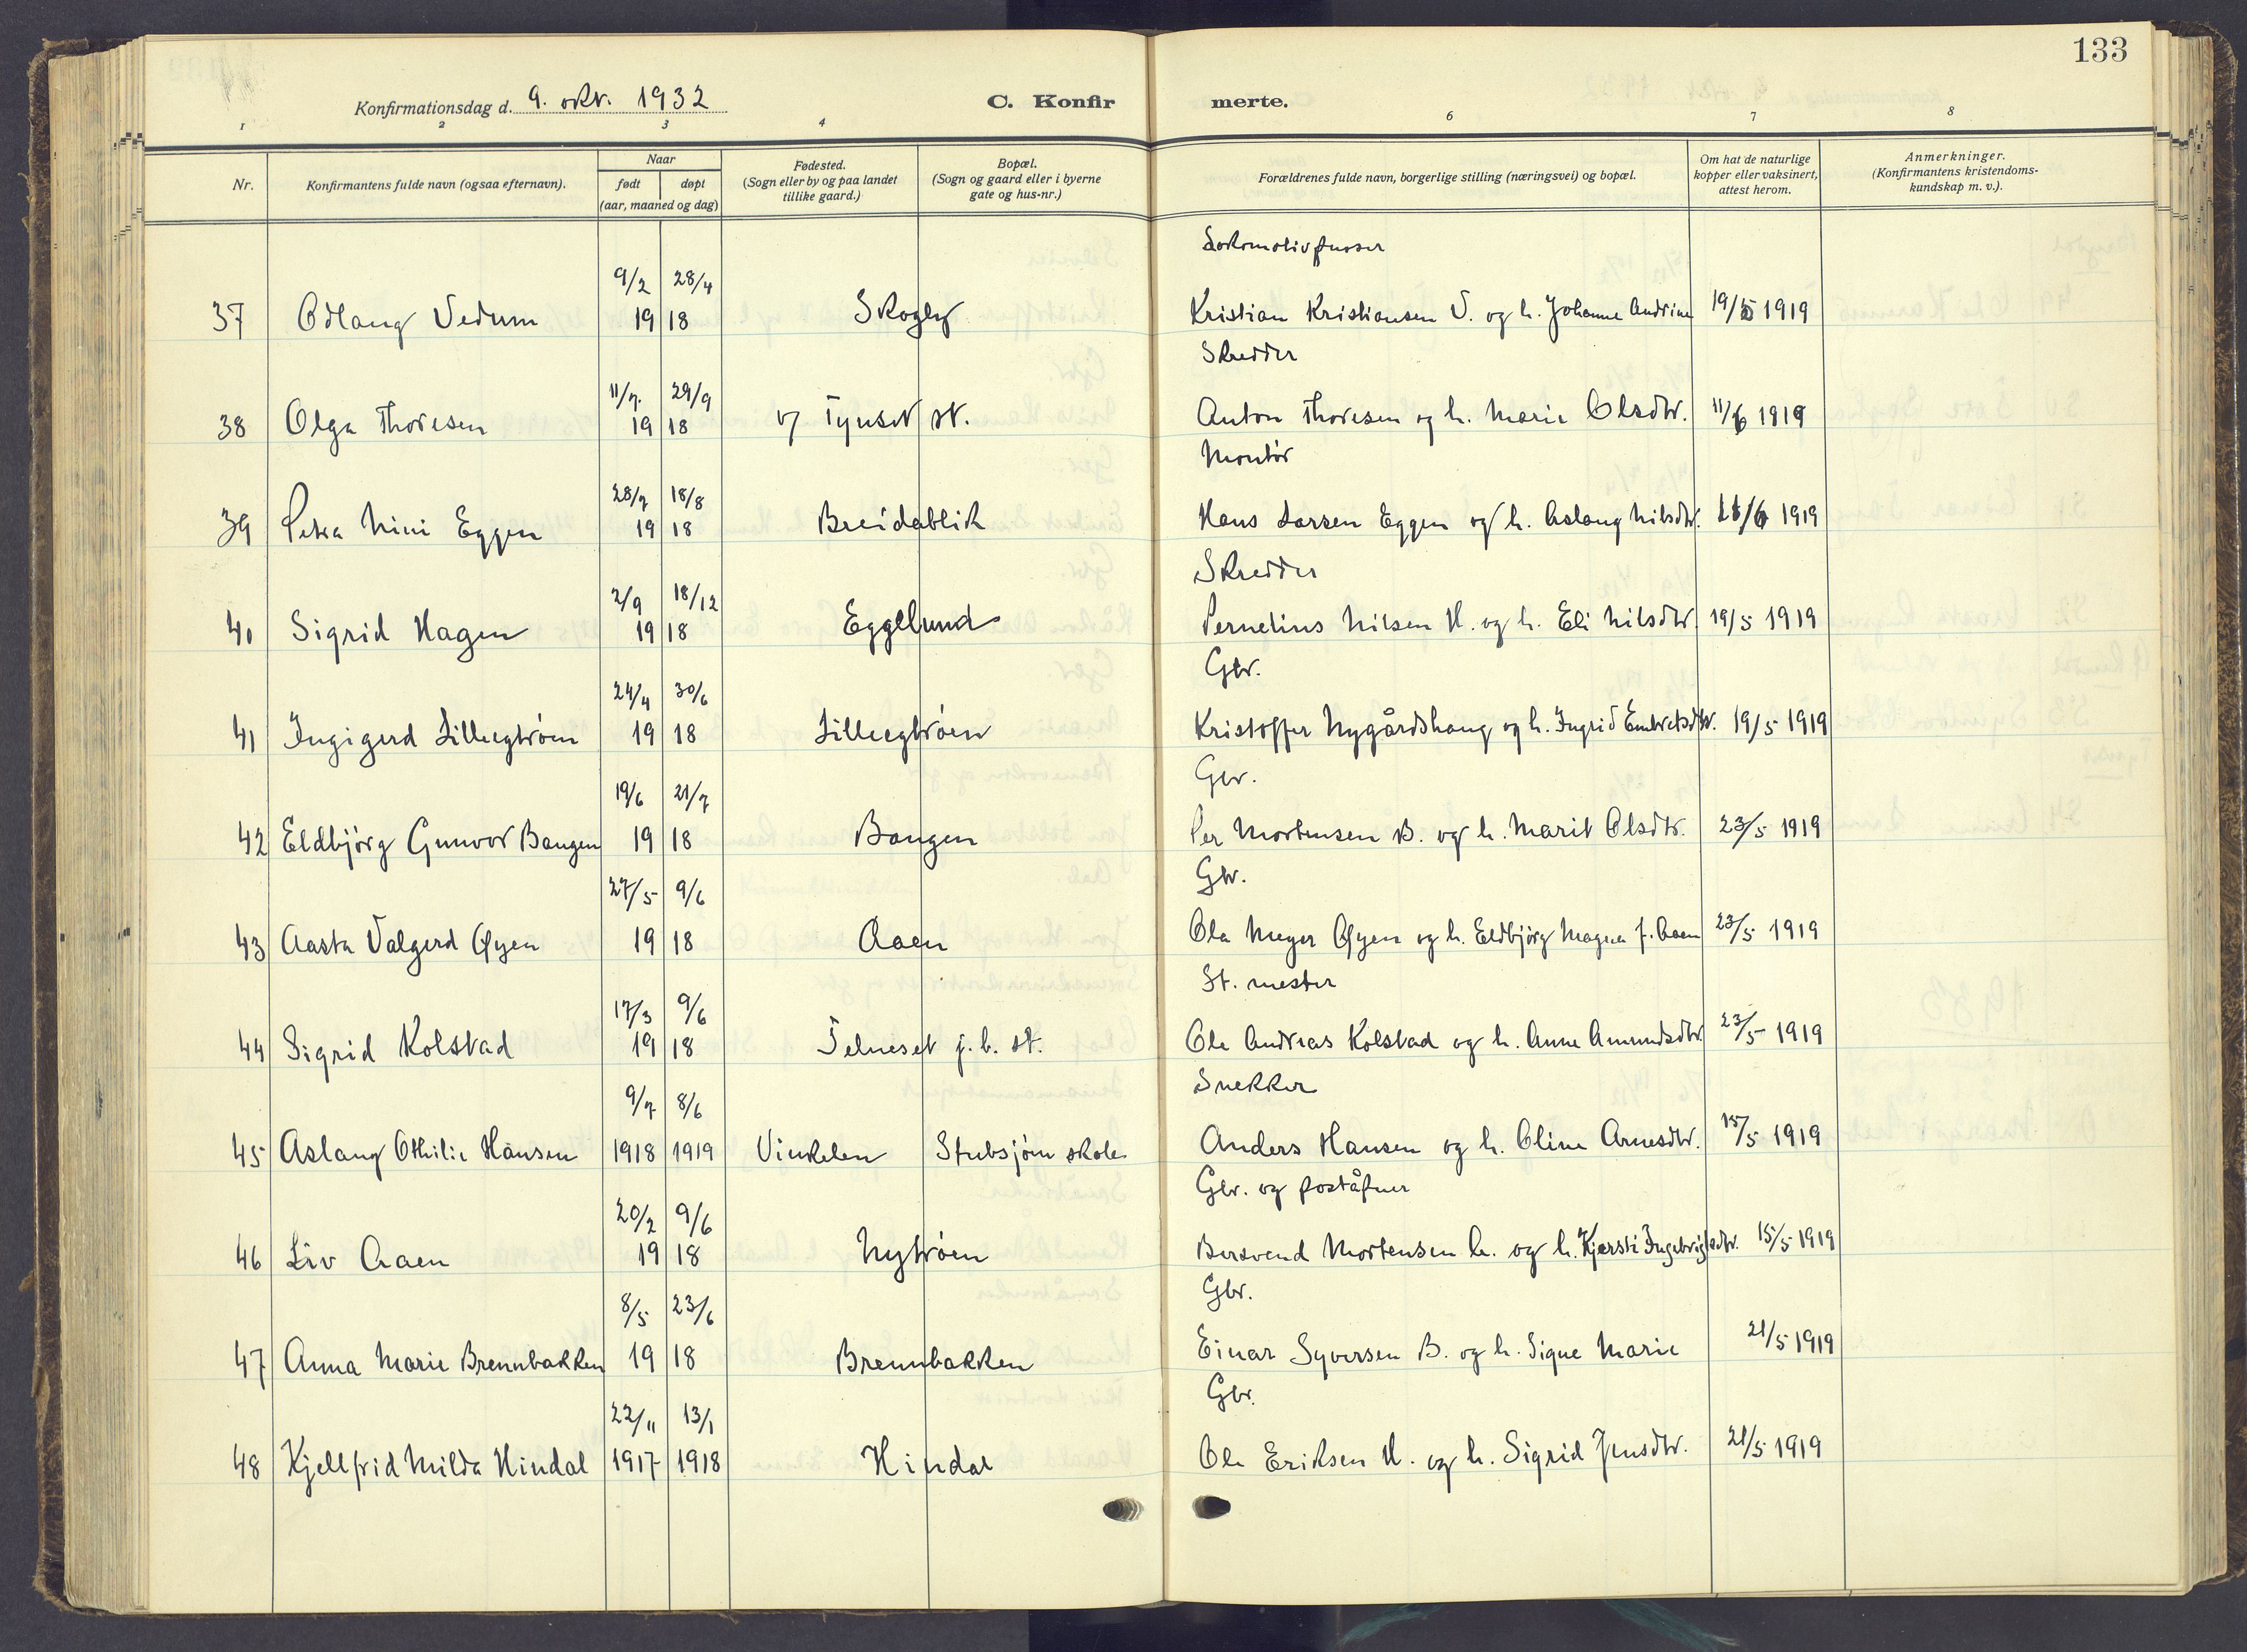 133
Konfirmationsdag d. 9. okt. 1932
C. Konfir merte.
1 2 3 4 6 7 8
Nr.
Konfirmantens fulde navn (ogsaa efternavn).
Naar
født døpt
(aar, maaned og dag)
Fødested.
(Sogn eller by og paa landet
tillike gaard.)
Bopæl.
(Sogn og gaard eller i byerne
gate og hus-nr.)
Forældrenes fulde navn, borgerlige stilling (næringsvei) og bopæl.
Om hat de naturlige
kopper eller vaksinert,
attest herom.
Anmerkninger.
(Konfirmantens kristendoms-
kundskap m. v.).
Lokomotivpusser
9/2 28/4
37 Odlaug Vedum 19 18 Skogly Kristian Kristiansen V. og h. Johanne Andrine 19/5 1919
Skredder
11/7. 29/9
38 Olga Thoresen 19 18 v/ Tynset st. Anton Thoresen og h. Marie Olsdtr. 11/6 1919
Montör
28/7 18/8
39 Petra Nini Eggen 19 18 Breidablik Hans Larsen Eggen og h. Aslaug Nilsdtr. 1919
Skredder
2/9 18/12
40 Sigrid Hagen 19 18 Eggelund Pernelius Nilsen H. og h. Eli Nilsdtr. 19/5 1919
Gbr.
24/4 30/6
41 Ingigerd Lilleegtröen 19 18 Lilleegtröen Kristoffer Nygårdshaug og h. Ingrid Embretsdtr. 19/5 1919
Gbr.
19/6 21/7
42 Eldbjörg Gunvor Bangen 19 18 Bangen Per Mortensen B. og h. Marit Olsdtr. 23/5 1919
Gbr.
27/5 9/6
43 Aasta Valgerd Øyen 19 18 Aaen Ola Meyer Øyen og h. Eldbjörg Magna f. Aaen 23/5 1919
St. mester
17/3 9/6
44 Sigrid Kolstad 19 18 Telneset j. b. st. Ole Andreas Kolstad og h. Anne Amundsdtr. 23/5 1919
Snekker
9/7 8/6
45 Aslaug Othilie Hansen 1918 1919 Vinkelen Stubsjöen skole Anders Hansen og h. Oline Arnesdtr. 15/5 1919
Gbr. og poståpner
20/2 9/6
46 Liv Aaen 19 18 Nytröen Bersvend Mortensen A. og h. Kjersti Ingebrigtsdtr. 15/5 1919
Gbr.
8/5 23/6
47 Anna Marie Brennbakken 19 18 Brennbakken Einar Syversen B. og h. Signe Marie 21/5 1919
Gbr.
22/11 13/1
48 Kjellfrid Milda Hindal 1917 1918 Hindal Ole Eriksen H. og h. Sigrid Jensdtr. 21/5 1919